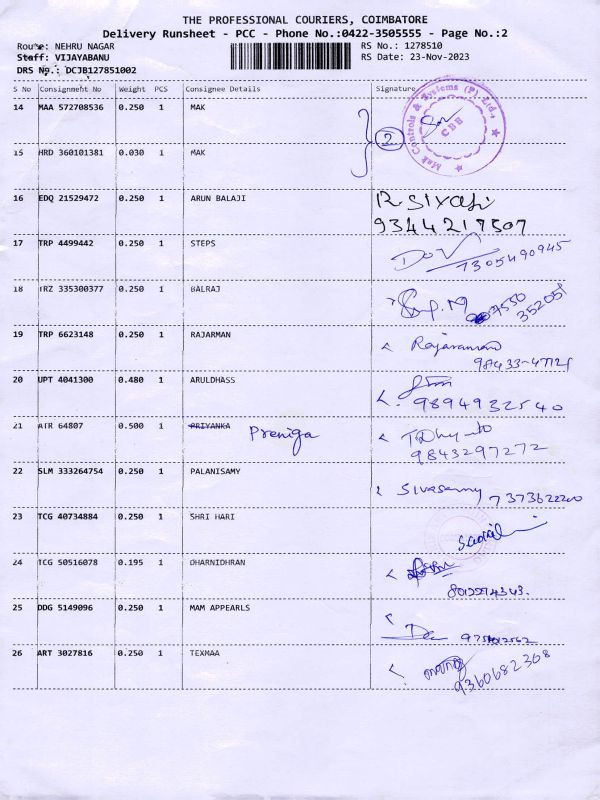 THE PROFESSIONAL COURIERS, COIMBATORE
Delivery Runsheet - PCC - Phone No.:0422-3505555 - Page No.:2
Route: NEHRU NAGAR RS No.: 1278510
Staff: VIJAYABANU RS Date: 23-Nov-2023
DRS No.: DCJB127851002
S No Consignment No Weight PCS Consignee Details Signature
14 MAA 572708536 0.250 1 MAK
Mak Controls & Systems (P) Ltd
CBE
2
15 HRD 360101381 0.030 1 MAK
16 EDQ 21529472 0.250 1 ARUN BALAJI R Sivaji
9344217507
17 TRP 4499442 0.250 1 STEPS
7305490945
18 TRZ 335300377 0.250 1 BALRAJ
352051
19 TRP 6623148 0.250 1 RAJARMAN Rajaraman
98433-47121
20 UPT 4041300 0.480 1 ARULDHASS
9894932540
21 ATR 64807 0.500 1 PRIYANKA Preniga
9843297272
22 SLM 333264754 0.250 1 PALANISAMY Sivasamy 7373622200
23 TCG 40734884 0.250 1 SHRI HARI
24 TCG 50516078 0.195 1 DHARNIDHRAN
8012274343.
25 DDG 5149096 0.250 1 MAM APPEARLS
26 ART 3027816 0.250 1 TEXMAA
9360682368